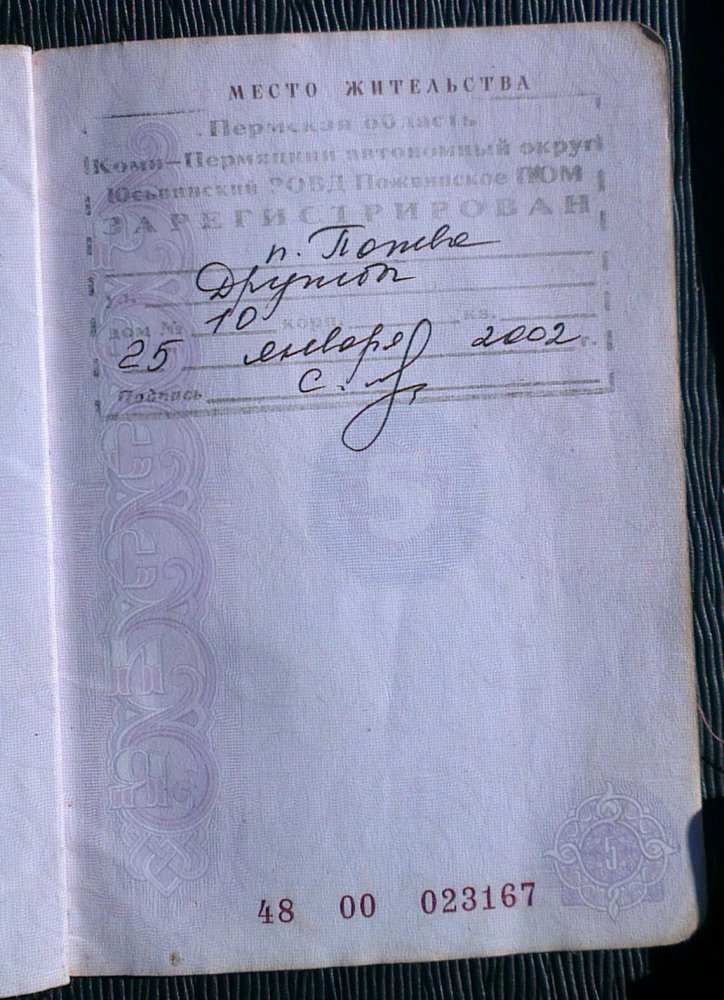 МЕСТО ЖИТЕЛЬСТВА
Пермская область
Коми-Пермяцкий автономный округ
Юсьвинский РОВД Пожвинское ПОМ
ЗАРЕГИСТРИРОВАН
п. Пожва
ул. Дружбы
дом № 10 корп. кв.
25 января 2002 г.
Подпись
5
48 00 023167
5